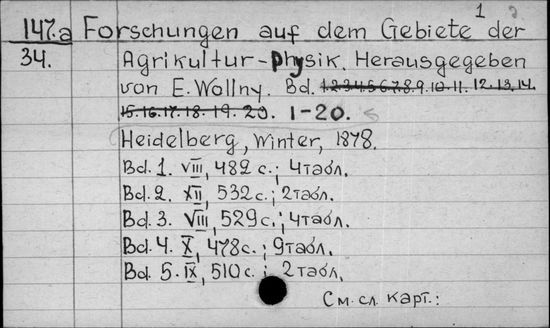 1
147.a Forschungen auf dem Gebiete der
34. Agrikultur-Physik. Herausgegeben
von E. Wollny. Bd. 1.2.3.4.5.6.7.8.9.10.11.12.13.14.
15.16.17.18.19.20. 1-20.
Heidelberg, Winter, 1878.
Bd. 1. VIII, 482 с.; 4 табл.
Bd. 2. XII, 532 с.; 2 табл.
Bd. 3. VIII, 529 с.; 4 табл.
Bd. 4. X, 478 с.; 9 табл.
Bd. 5. IX, 510 с.; 2 табл.
См. сл. карт.: